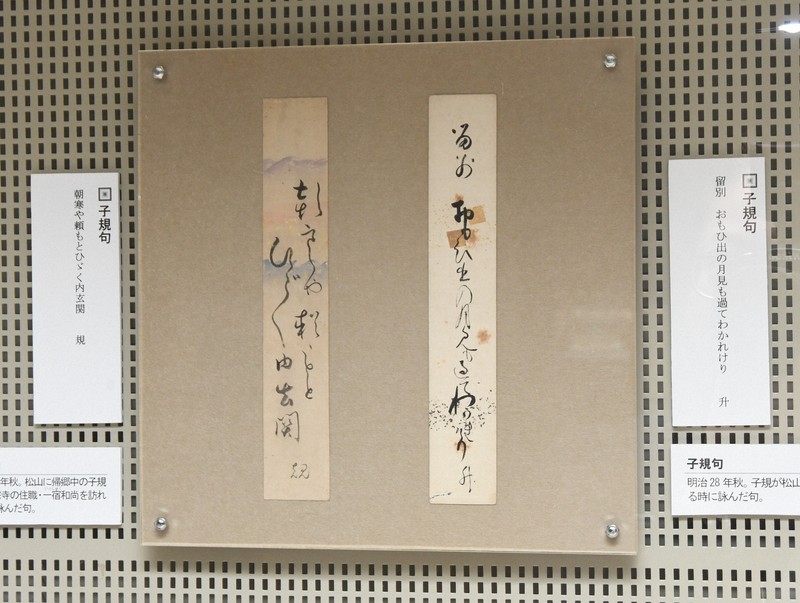 子規句
留別　おもひ出の月見も過てわかれけり　升
子規句
明治28年秋。子規が松山
る時に詠んだ句。
留別
おもひ出の月見も過てわかれけり　升
朝寒や頼もと
ひゞく内玄関
規
子規句
朝寒や頼もとひゞく内玄関　規
年秋。松山に帰郷中の子規
寺の住職・一宿和尚を訪れ
詠んだ句。